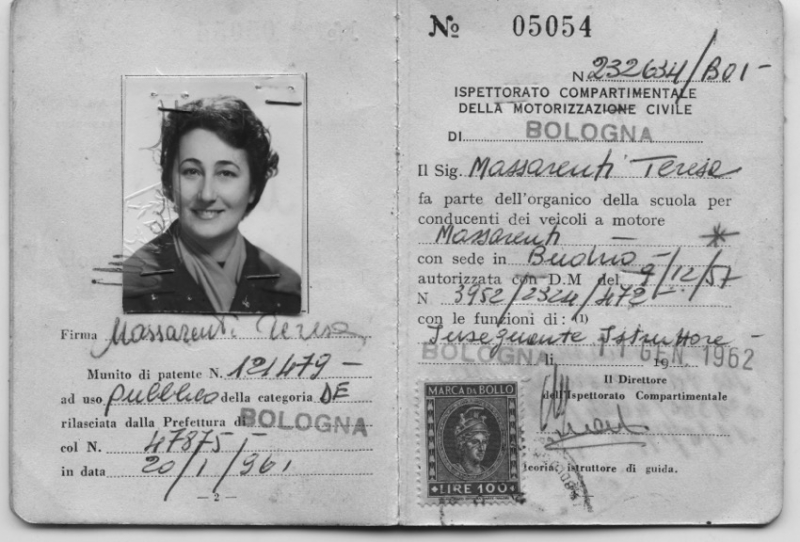 Firma Massarenti Teresa
Munito di patente N. 121479 -
ad uso pubblico della categoria DE
rilasciata dalla Prefettura di BOLOGNA
col N. 47875 -
in data 20/1/961
— 2 —
No 05054
N 232634/B01 -
ISPETTORATO COMPARTIMENTALE
DELLA MOTORIZZAZIONE CIVILE
DI BOLOGNA
Il Sig. Massarenti Teresa
fa parte dell'organico della scuola per
conducenti dei veicoli a motore
Massarenti -
con sede in Budrio -
autorizzata con D.M del 9/12/57
N 3952/2324/472 -
con le funzioni di: (1)
Insegnante Istruttore -
BOLOGNA li 11 GEN 1962
Il Direttore
dell'Ispettorato Compartimentale
MARCA DA BOLLO
LIRE 100
teoria, istruttore di guida.